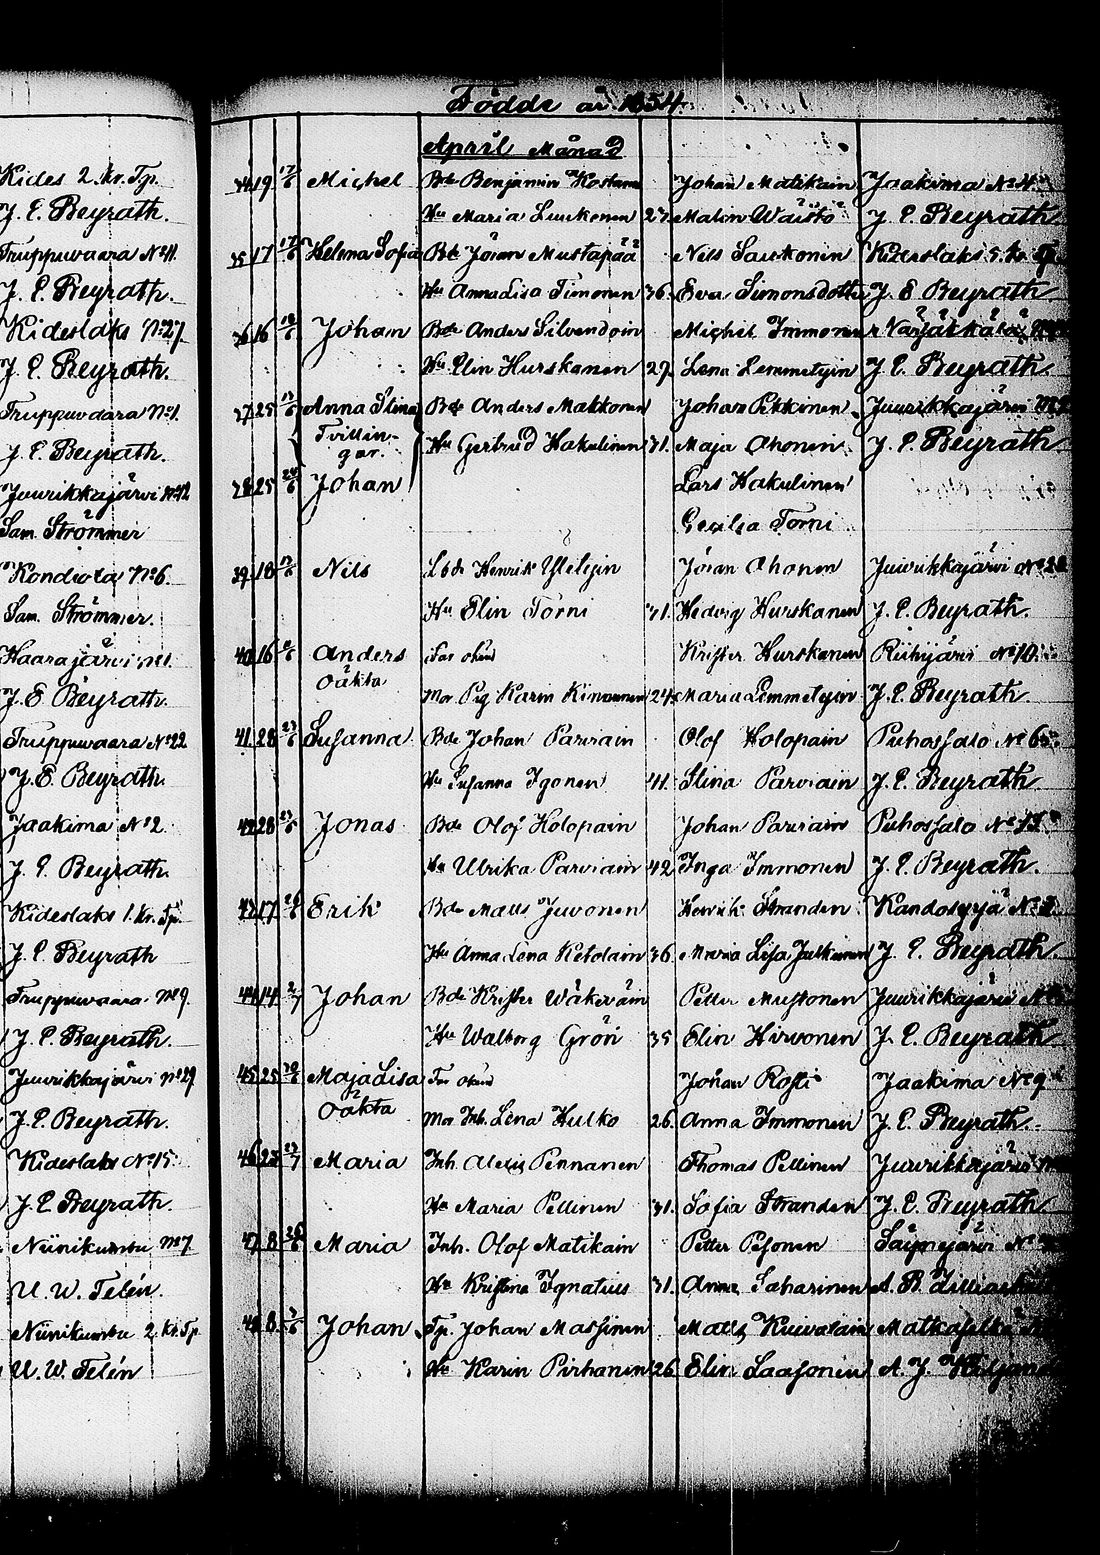 Kides 2. kr. Tp.
J. E. Beyrath.
Truppuvaara No 11.
J. E. Beyrath.
Kideslaks No 27.
J. E. Beyrath.
Truppuvaara No 1.
J. E. Beyrath.
Juurikkajärvi No 12
Sam. Strömmer
Kondiola No 6.
Sam. Strömmer.
Haarajärvi No 1.
J. E. Beyrath.
Truppuvaara No 22
J. E. Beyrath.
Jaakima No 2.
J. E. Beyrath.
Kideslaks 1. Kr. Tp.
J. E. Beyrath
Truppuvaara No 9.
J. E. Beyrath.
Juurikkajärvi No 29
J. E. Beyrath.
Kideslaks No 15.
J. E. Beyrath.
Niinikumbu No 7
U. W. Telén.
Niinikumbu 2. Kr. Tp.
U. W. Telén
Födde år 1854.
April Månad
19 Michel Bde Benjamin Johan Matikain Jaakima No 4.
Hu Maria Luukonen 27. Malin Wäistö J. E. Beyrath
17 Helena Sofia Bde Jöran Mustapää Nils Saukonin Kideslaks 5. kr. Tp.
Hu Anna Lisa Timonen 36. Eva Simonsdotter J. E. Beyrath
36 16 Johan Bde Anders Silvendoin Michel Immonen Varjakkala
Hu Elin Hurskanen 29. Lena Lemmetyin J. E. Beyrath.
37 25 Anna Stina Bde Anders Makkonen Johan Pekkinen Juurikkajärvi
Tvillingar. Hu Gertrud Hakulinen 31. Maja Ahonen J. E. Beyrath
38 25 Johan Lars Hakulinen
Cecilia Torni
39 18 Nils Lbde Henrik Yletyin Jöran Ahonen Juurikkajärvi
Hu Elin Torni 31. Hedvig Hurskanen J. E. Beyrath.
40 16 Anders Far okänd Krister Hurskanen Riihijärvi No 10.
Oäkta Mor Pig Karin Kinnunen 24. Maria Lemmetyin J. E. Beyrath.
41 28 Susanna Bde Johan Parviain Olof Holopain Puhossalo No 6
Hu Susanna Igonen 41. Stina Parviain J. E. Beyrath.
42 28 Jonas Bde Olof Holopain Johan Parviain Puhossalo
Hu Ulrika Parviain 42 Inga Immonen J. E. Beyrath.
43 17 Erik Bde Matts Juvonen Henrik Stranden Kandosyjä
Hu Anna Lena Ketolain 36. Maria Lisa Julkunen J. E. Beyrath
44 14 Johan Bde Krister Wäkeväin Petter Mustonen Juurikkajärvi
Hu Walborg Grön 35 Elin Hirvonen J. E. Beyrath
45 25 Maja Lisa Far okänd Johan Rosti Jaakima No 9
Oäkta Mor Inh. Lena Hulko 26. Anna Immonen J. E. Beyrath.
46 23 Maria Inh. Alexis Pennanen Thomas Pellinen Juurikkajärvi
Hu Maria Pellinen 31. Sofia Stranden J. E. Beyrath
47 8 Maria Inh. Olof Matikain Petter Pesonen
Hu Kristina Ignatius 31. Anna Saharinen A. B.
48 8 Johan Tp. Johan Massinen Matts Kuivalain Matkaselkä
Hu Karin Pirhonen 26 Elin Laasonen A. J.